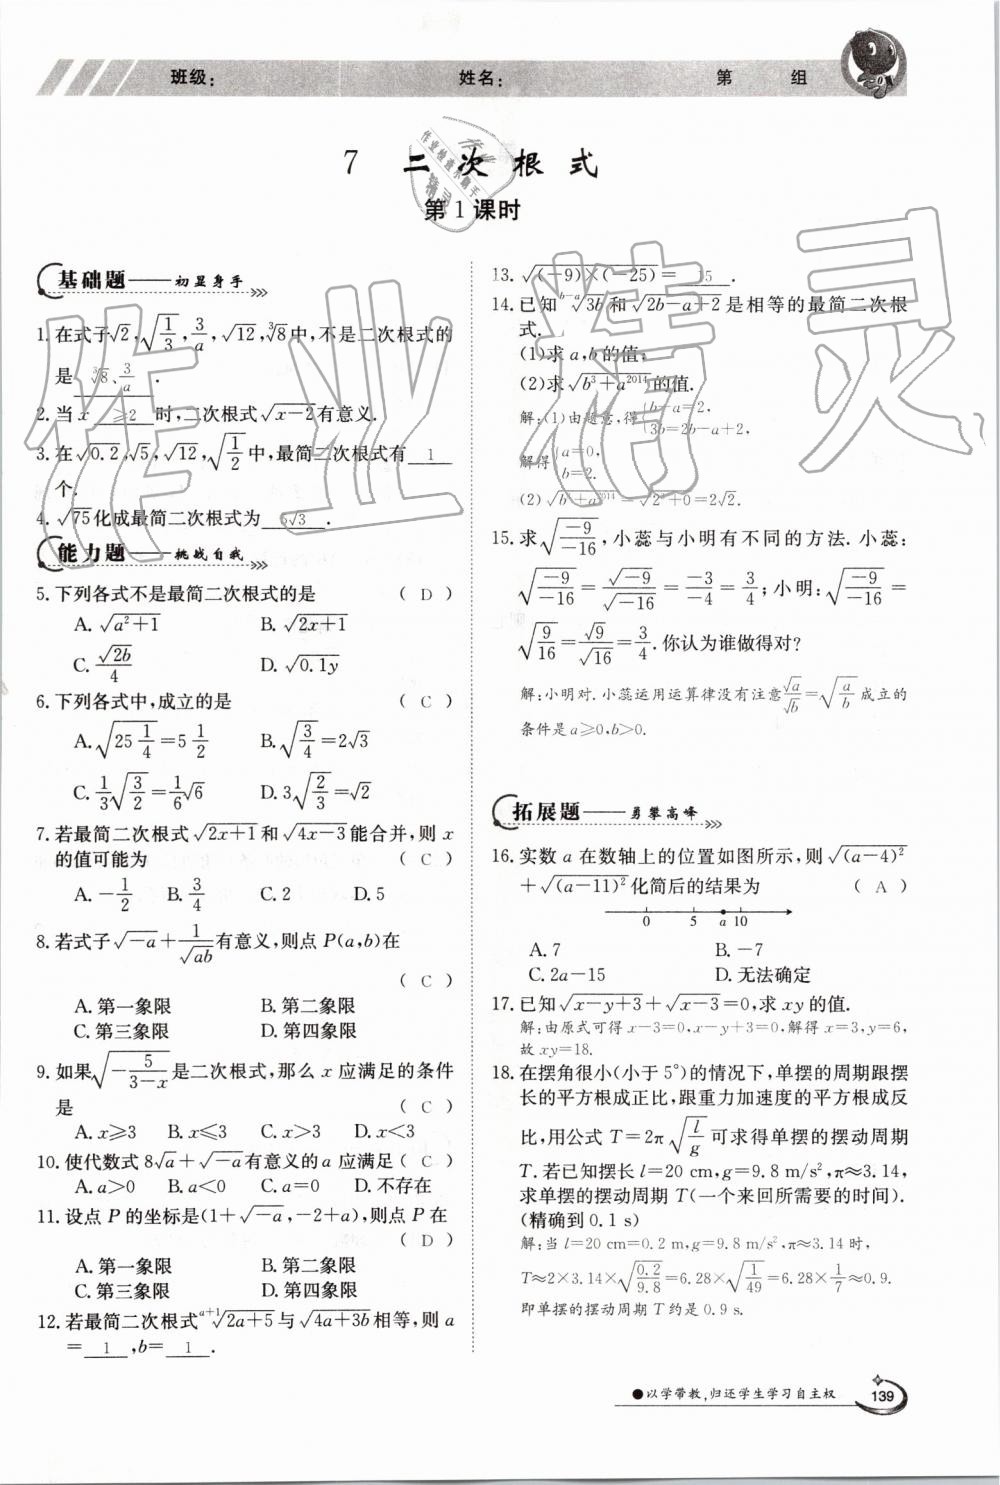 班级： 姓名： 第 组
7 二次根式
第1课时
基础题——初显身手
1. 在式子√2,√(1/3),3/a,√12,∛8中,不是二次根式的
是 ∛8、3/a .
2. 当 x ≥2 时,二次根式√(x-2)有意义.
3. 在√0.2,√5,√12,√(1/2)中,最简二次根式有 1
个.
4. √75化成最简二次根式为 5√3 .
能力题——挑战自我
5. 下列各式不是最简二次根式的是 ( D )
A. √(a²+1) B. √(2x+1)
C. √(2b)/4 D. √(0.1y)
6. 下列各式中,成立的是 ( C )
A. √(25 1/4)=5 1/2 B. √(3/4)=2√3
C. 1/3√(3/2)=1/6√6 D. 3√(2/3)=√2
7. 若最简二次根式√(2x+1)和√(4x-3)能合并,则 x
的值可能为 ( C )
A. -1/2 B. 3/4 C. 2 D. 5
8. 若式子√(-a)+1/√(ab)有意义,则点 P(a,b)在
( C )
A. 第一象限 B. 第二象限
C. 第三象限 D. 第四象限
9. 如果√(-5/(3-x))是二次根式,那么 x 应满足的条件
是 ( C )
A. x≥3 B. x≤3 C. x>3 D. x<3
10. 使代数式 8√a+√(-a)有意义的 a 应满足( C )
A. a>0 B. a<0 C. a=0 D. 不存在
11. 设点 P 的坐标是(1+√(-a),-2+a),则点 P 在
( D )
A. 第一象限 B. 第二象限
C. 第三象限 D. 第四象限
12. 若最简二次根式ᵃ⁺¹√(2a+5)与√(4a+3b)相等,则 a
= 1 ,b= 1 .
13. √((-9)×(-25))= 15 .
14. 已知ᵇ⁻ᵃ√(3b)和√(2b-a+2)是相等的最简二次根
式.
(1)求 a,b 的值;
(2)求√(b³+a²⁰¹⁴)的值.
解:(1)由题意,得{b-a=2,
3b=2b-a+2,
解得{a=0,
b=2.
(2)√(b³+a²⁰¹⁴)=√(2³+0)=2√2.
15. 求√(-9/-16),小蕊与小明有不同的方法. 小蕊:
√(-9/-16)=√-9/√-16=-3/-4=3/4;小明:√(-9/-16)=
√(9/16)=√9/√16=3/4.你认为谁做得对?
解:小明对.小蕊运用运算律没有注意√a/√b=√(a/b)成立的
条件是 a≥0,b>0.
拓展题——勇攀高峰
16. 实数 a 在数轴上的位置如图所示,则√((a-4)²)
+√((a-11)²)化简后的结果为 ( A )
0 5 a 10
A. 7 B. -7
C. 2a-15 D. 无法确定
17. 已知√(x-y+3)+√(x-3)=0,求 xy 的值.
解:由原式可得 x-3=0,x-y+3=0,解得 x=3,y=6,
故 xy=18.
18. 在摆角很小(小于 5°)的情况下,单摆的周期跟摆
长的平方根成正比,跟重力加速度的平方根成反
比,用公式 T=2π√(l/g)可求得单摆的摆动周期
T. 若已知摆长 l=20 cm,g=9.8 m/s²,π≈3.14,
求单摆的摆动周期 T(一个来回所需要的时间).
(精确到 0.1 s)
解:当 l=20 cm=0.2 m,g=9.8 m/s²,π≈3.14 时,
T≈2×3.14×√(0.2/9.8)=6.28×√(1/49)=6.28×1/7≈0.9.
即单摆的摆动周期 T 约是 0.9 s.
●以学带教,归还学生学习自主权
139
作业精灵
作业检查小助手